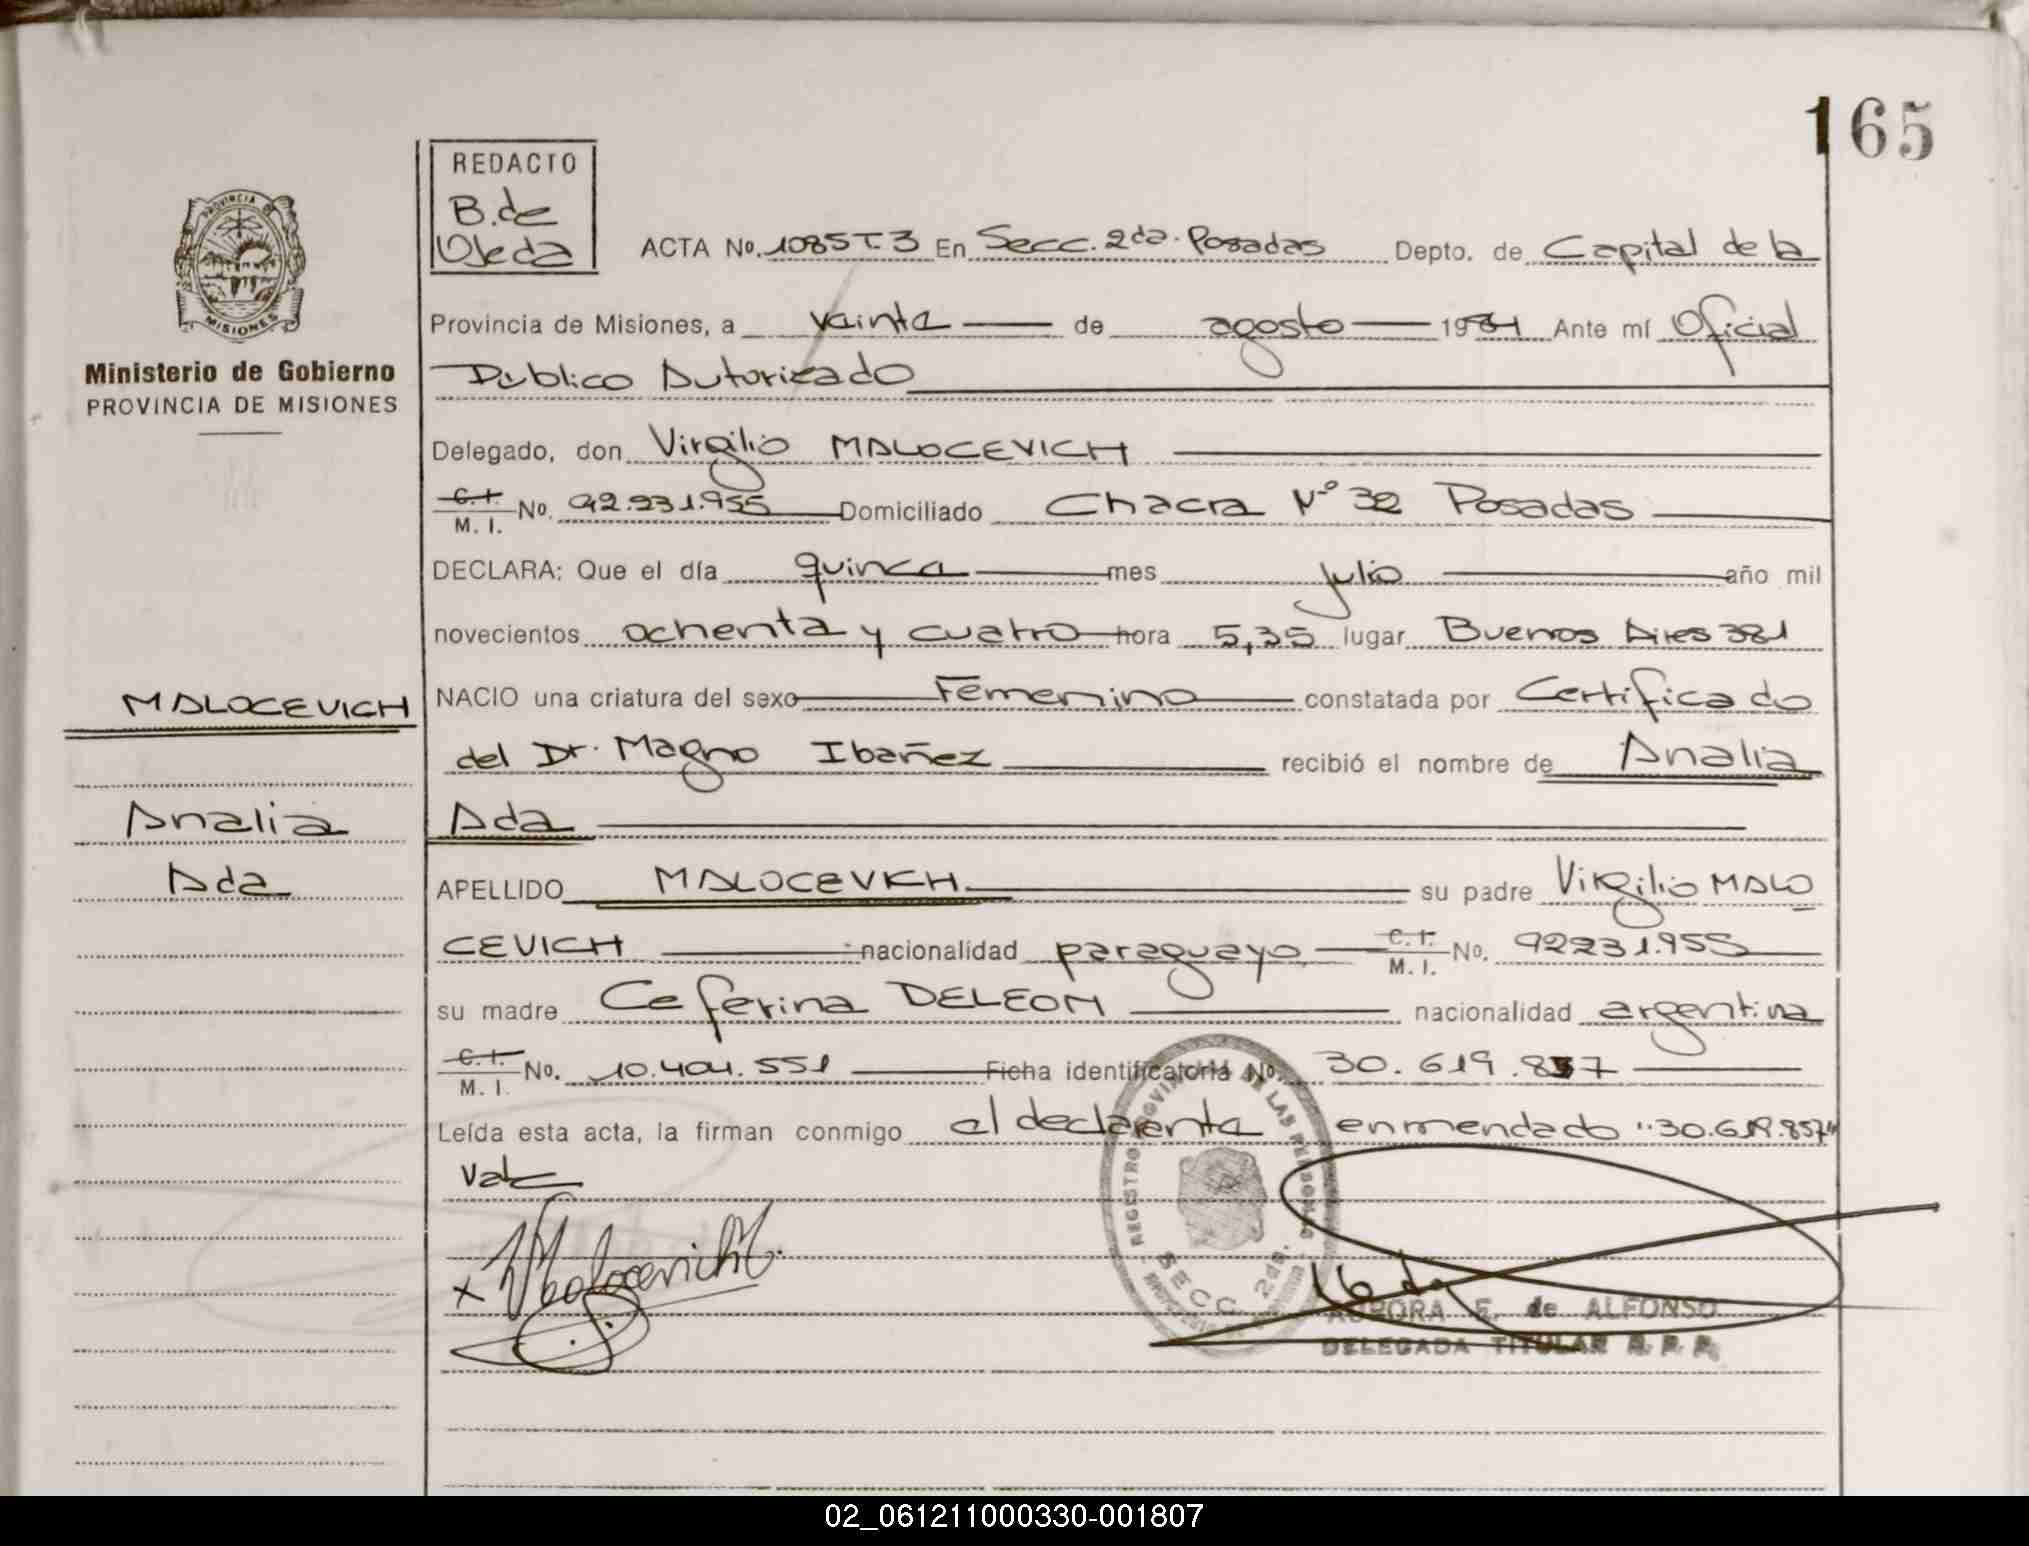 165
REDACTO
B. de
Ojeda
PROVINCIA DE
MISIONES
Ministerio de Gobierno
PROVINCIA DE MISIONES
ACTA No. 1085 T.3 En Secc. 2da. Posadas Depto. de Capital de la
Provincia de Misiones, a veinte de agosto 1984 Ante mí Oficial
Publico Autorizado
Delegado, don Virgilio MALOCEVICH
C.I. M.I. No. 92.231.955 Domiciliado Chacra Nº 32 Posadas
DECLARA: Que el día quince mes julio año mil
novecientos ochenta y cuatro hora 5,35 lugar Buenos Aires 381
MALOCEVICH
NACIO una criatura del sexo Femenino constatada por Certificado
del Dr. Magno Ibañez recibió el nombre de Analia
Analia
Ada
Ada
APELLIDO MALOCEVICH su padre Virgilio MALO
CEVICH nacionalidad paraguayo C.I. M.I. No. 92231.955
su madre Ceferina DELEON nacionalidad argentina
C.I. M.I. No. 10.404.551 Ficha identificatoria No. 30.619.857
Leída esta acta, la firman conmigo el declarente enmendado "30.619.857"
Vale
REGISTRO PROVINCIAL DE LAS PERSONAS
SECC. 2da.
AURORA E. de ALFONSO
DELEGADA TITULAR R. P. P.
02_061211000330-001807